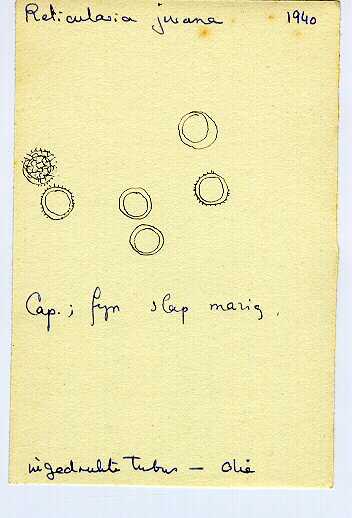 Reticularia jurana 1940
Cap.; fyn slap mazig.
ingedrukte tubus - olie